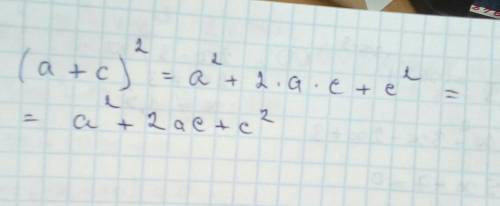 (a + c)² = a² + 2 · a · c + c² =
= a² + 2ac + c²